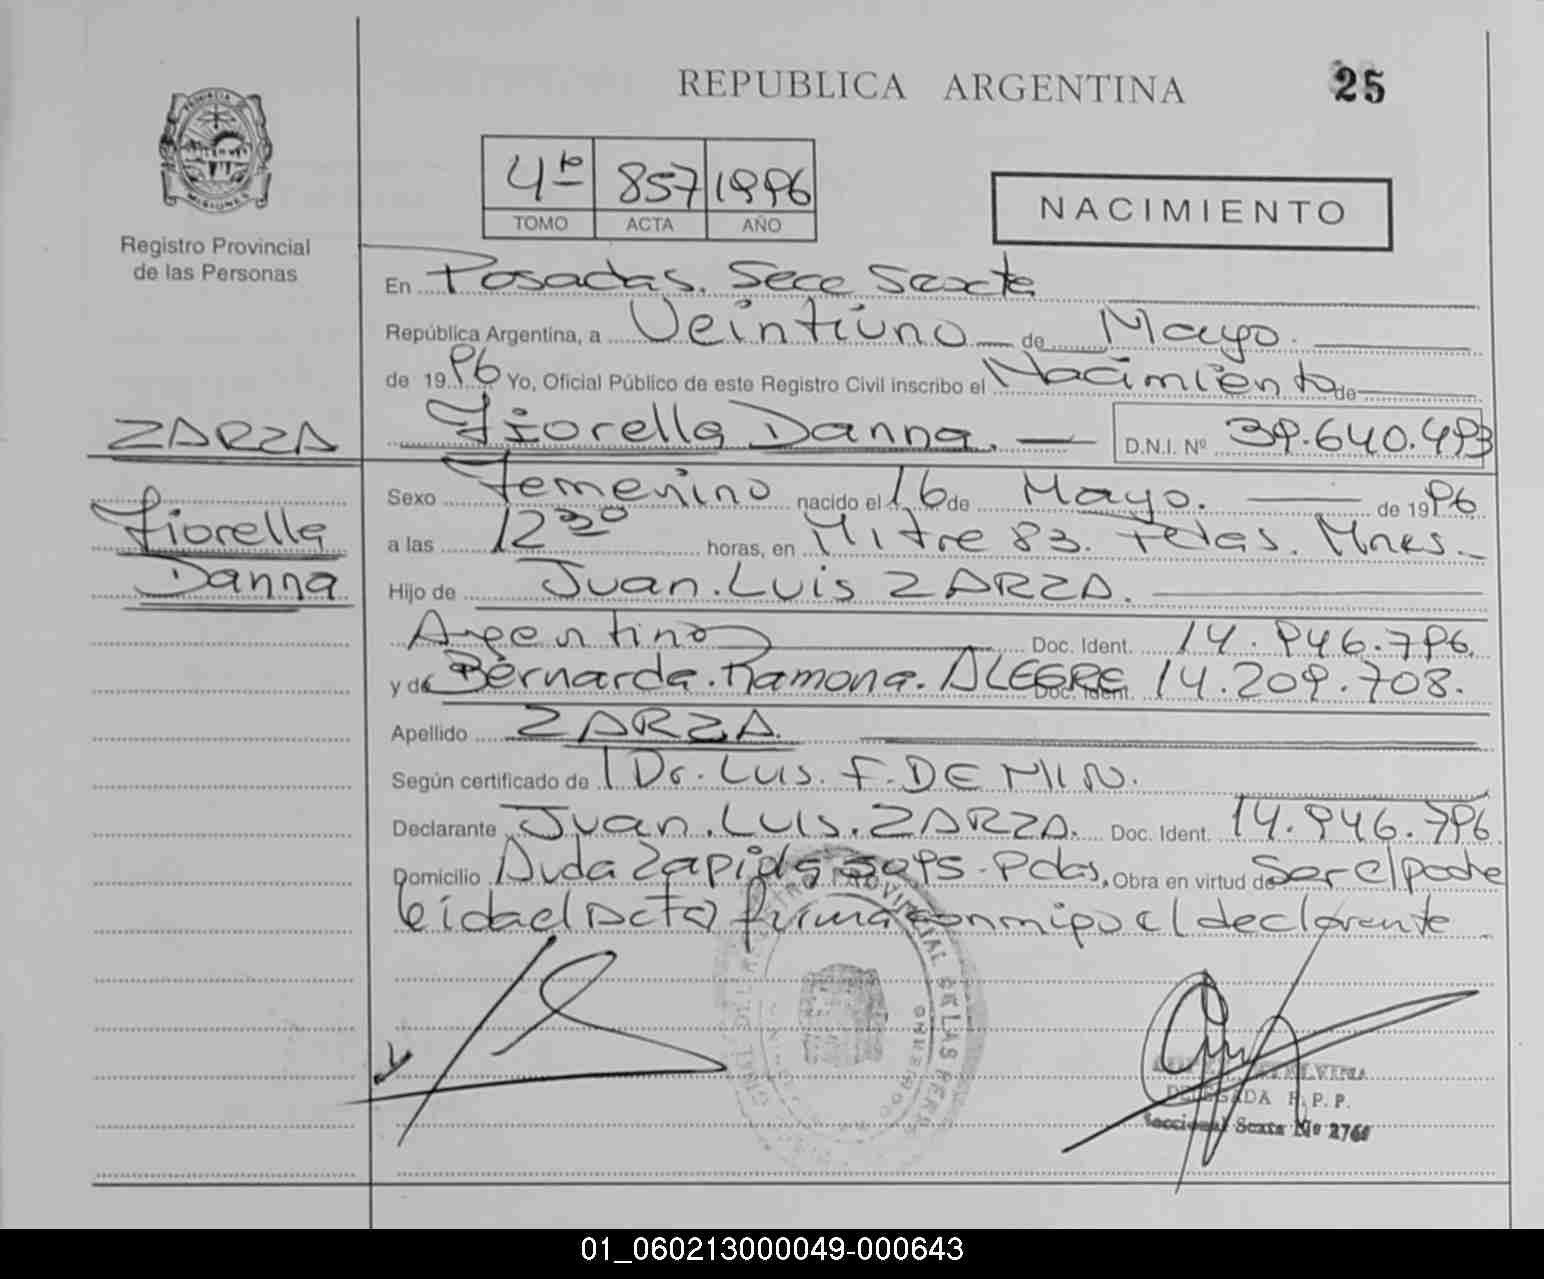 REPUBLICA ARGENTINA
25
PROVINCIA DE
MISIONES
Registro Provincial
de las Personas
4to 857 1996
TOMO ACTA AÑO
NACIMIENTO
En Posadas. Secc Sexta
República Argentina, a Veintiuno de Mayo.
de 1996 Yo, Oficial Público de este Registro Civil inscribo el Nacimiento de
ZARZA
Fiorella Danna.
D.N.I. Nº 39.640.493
Fiorella
Danna
Sexo Femenino nacido el 16 de Mayo. de 1996
a las 12 30 horas, en Mitre 83. Pdas. Mnes.
Hijo de Juan. Luis ZARZA.
Argentino Doc. Ident. 14.946.796.
y de Bernarda. Ramona. ALEGRE Doc. Ident. 14.209.708.
Apellido ZARZA.
Según certificado de Dr. Luis. F. DEMIN.
Declarante Juan. Luis. ZARZA. Doc. Ident. 14.946.796.
Domicilio Avda Zapiola Pdas. Obra en virtud de Ser el padre
leida el Acta firma conmigo el declarante.
REGISTRO PROVINCIAL DE LAS PERS
DELEGADA R.P.P.
Seccional Sexta Nº
01_060213000049-000643